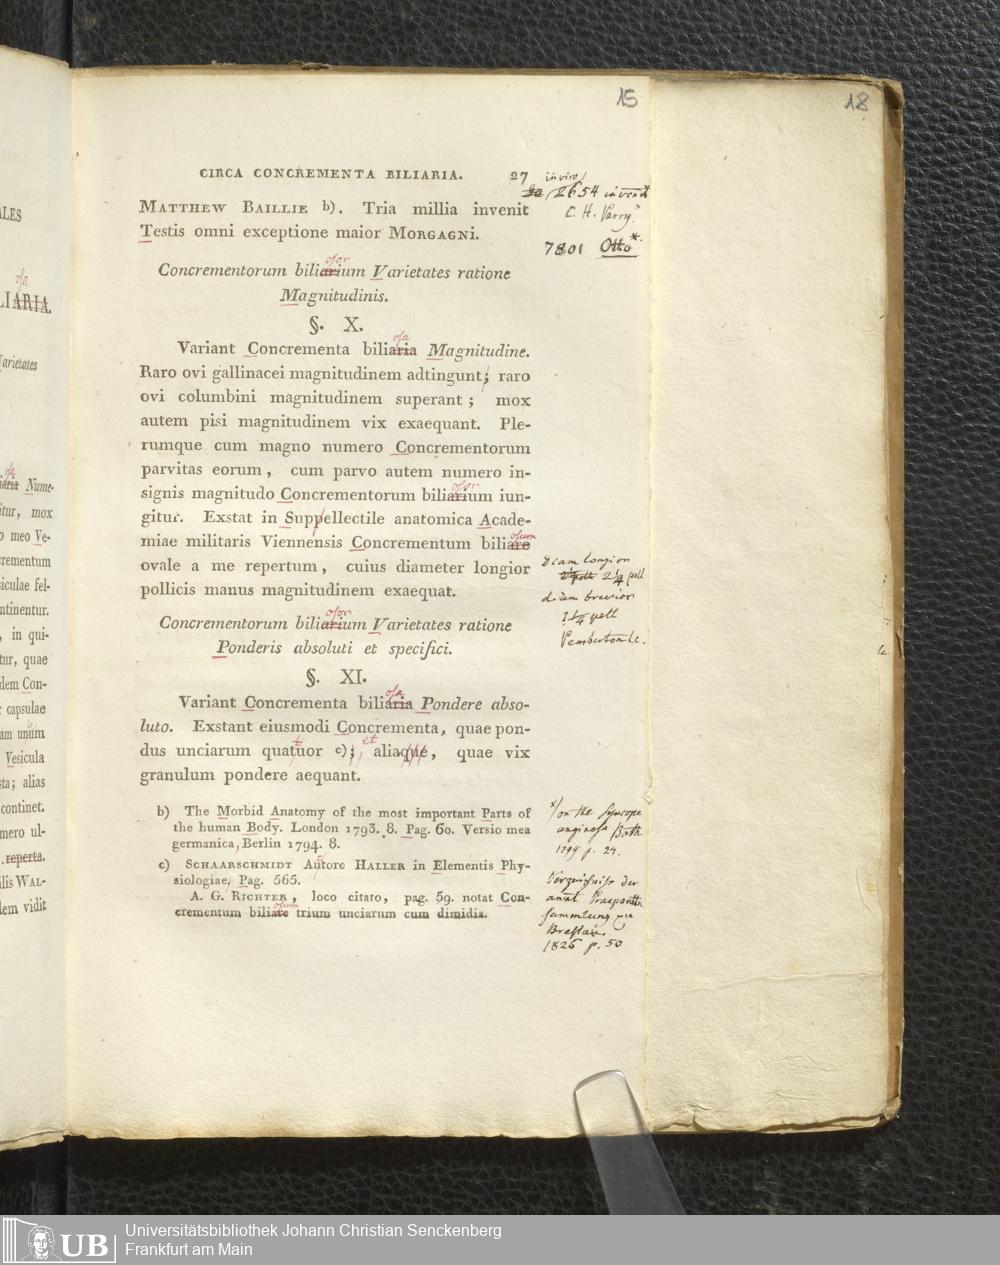 15
18
CIRCA CONCREMENTA BILIARIA. 27
in viro
2654 invenit
C. H. Parry.*
7801 Otto*.
MATTHEW BAILLIE b). Tria millia invenit
Testis omni exceptione maior MORGAGNI.
osor
Concrementorum biliarium Varietates ratione
Magnitudinis.
§. X.
osa
Variant Concrementa biliaria Magnitudine.
Raro ovi gallinacei magnitudinem adtingunt; raro
ovi columbini magnitudinem superant; mox
autem pisi magnitudinem vix exaequant. Ple-
rumque cum magno numero Concrementorum
parvitas eorum, cum parvo autem numero in-
osor
signis magnitudo Concrementorum biliarium iun-
gitur. Exstat in Suppellectile anatomica Acade-
osum
miae militaris Viennensis Concrementum biliare
ovale a me repertum, cuius diameter longior
pollicis manus magnitudinem exaequat.
Diam longior
2 1/4 poll
diam brevior
1 1/4 poll
Pemberton l.c.
osor
Concrementorum biliarium Varietates ratione
Ponderis absoluti et specifici.
§. XI.
osa
Variant Concrementa biliaria Pondere abso-
luto. Exstant eiusmodi Concrementa, quae pon-
et
dus unciarum quatuor c); aliaque, quae vix
granulum pondere aequant.
b) The Morbid Anatomy of the most important Parts of
the human Body. London 1793. 8. Pag. 60. Versio mea
germanica, Berlin 1794. 8.
c) SCHAARSCHMIDT Autore HALLER in Elementis Phy-
siologiae, Pag. 565.
A. G. RICHTER, loco citato, pag. 59. notat Con-
osum
crementum biliare trium unciarum cum dimidia.
*/ on the Syncope
anginosa Bath
1799 p. 24.
Verzeichniss der
anat Praeparaten
sammlung zu
Breslau
1826 p. 50
ALES
osa
LIARIA.
Varietates
osa
iaria Nume-
itur, mox
o meo Ve-
crementum
siculae fel-
ntinentur.
, in qui-
tur, quae
dem Con-
capsulae
am unum
Vesicula
sta; alias
continet.
mero ul-
reperta.
ilis WAL-
dem vidit
Universitätsbibliothek Johann Christian Senckenberg
Frankfurt am Main
UB